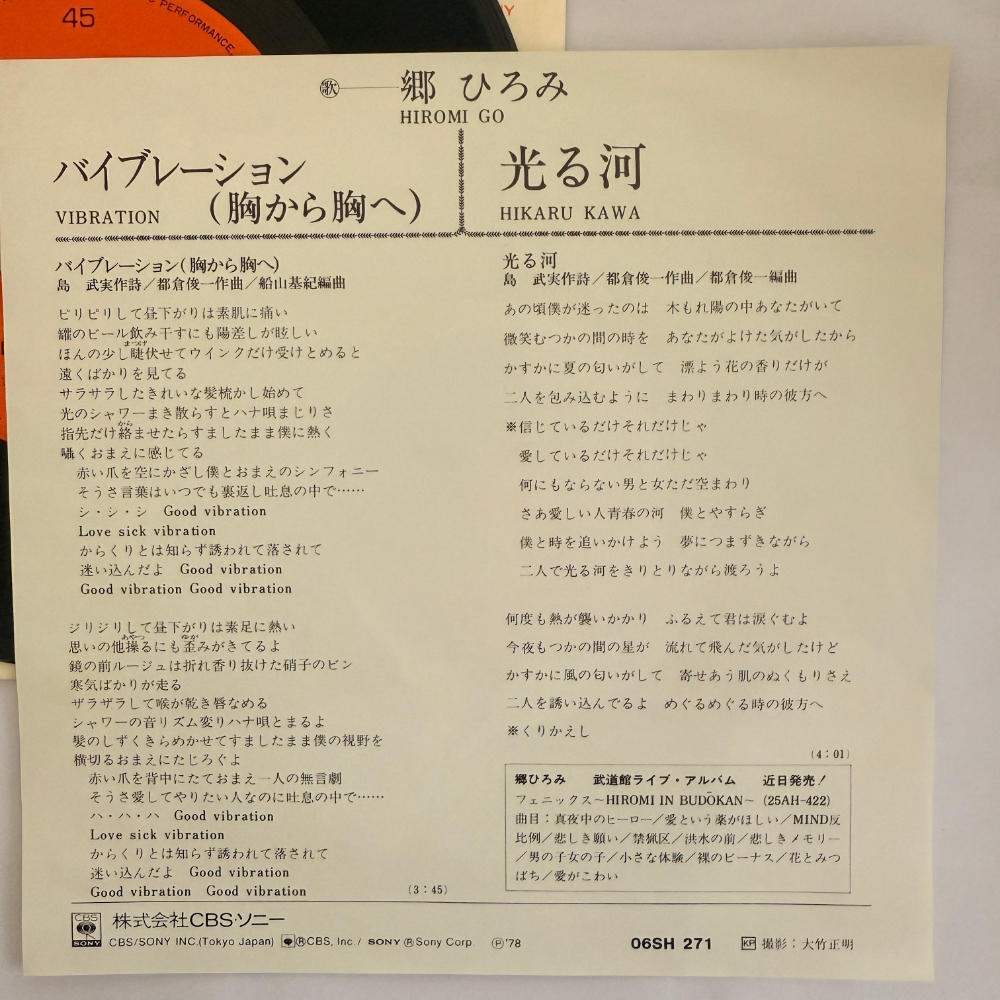 45
PERFORMANCE,
歌 郷 ひろみ
HIROMI GO
バイブレーション
(胸から胸へ)
VIBRATION
光る河
HIKARU KAWA
バイブレーション(胸から胸へ)
島 武実作詩/都倉俊一作曲/船山基紀編曲
ピリピリして昼下がりは素肌に痛い
罐のビール飲み干すにも陽差しが眩しい
ほんの少し睫伏せてウインクだけ受けとめると
遠くばかりを見てる
サラサラしたきれいな髪梳かし始めて
光のシャワーまき散らすとハナ唄まじりさ
指先だけ絡ませたらすましたまま僕に熱く
囁くおまえに感じてる
赤い爪を空にかざし僕とおまえのシンフォニー
そうさ言葉はいつでも裏返し吐息の中で……
シ・シ・シ Good vibration
Love sick vibration
からくりとは知らず誘われて落されて
迷い込んだよ Good vibration
Good vibration Good vibration
ジリジリして昼下がりは素足に熱い
思いの他操るにも歪みがきてるよ
鏡の前ルージュは折れ香り抜けた硝子のビン
寒気ばかりが走る
ザラザラして喉が乾き唇なめる
シャワーの音リズム変りハナ唄とまるよ
髪のしずくきらめかせてすましたまま僕の視野を
横切るおまえにたじろぐよ
赤い爪を背中にたておまえ一人の無言劇
そうさ愛してやりたい人なのに吐息の中で……
ハ・ハ・ハ Good vibration
Love sick vibration
からくりとは知らず誘われて落されて
迷い込んだよ Good vibration
Good vibration Good vibration
(3:45)
光る河
島 武実作詩/都倉俊一作曲/都倉俊一編曲
あの頃僕が迷ったのは 木もれ陽の中あなたがいて
微笑むつかの間の時を あなたがよけた気がしたから
かすかに夏の匂いがして 漂よう花の香りだけが
二人を包み込むように まわりまわり時の彼方へ
※信じているだけそれだけじゃ
愛しているだけそれだけじゃ
何にもならない男と女ただ空まわり
さあ愛しい人青春の河 僕とやすらぎ
僕と時を追いかけよう 夢につまずきながら
二人で光る河をきりとりながら渡ろうよ
何度も熱が襲いかかり ふるえて君は涙ぐむよ
今夜もつかの間の星が 流れて飛んだ気がしたけど
かすかに風の匂いがして 寄せあう肌のぬくもりさえ
二人を誘い込んでるよ めぐるめぐる時の彼方へ
※くりかえし
(4:01)
郷ひろみ 武道館ライブ・アルバム 近日発売!
フェニックス~HIROMI IN BUDŌKAN~ (25AH-422)
曲目:真夜中のヒーロー/愛という薬がほしい/MIND反
比例/悲しき願い/禁猟区/洪水の前/悲しきメモリー
/男の子女の子/小さな体験/裸のビーナス/花とみつ
ばち/愛がこわい
CBS SONY 株式会社CBS・ソニー
CBS/SONY INC.(Tokyo Japan) ®CBS, Inc./ SONY ®Sony Corp. Ⓟ'78
06SH 271
KP 撮影:大竹正明